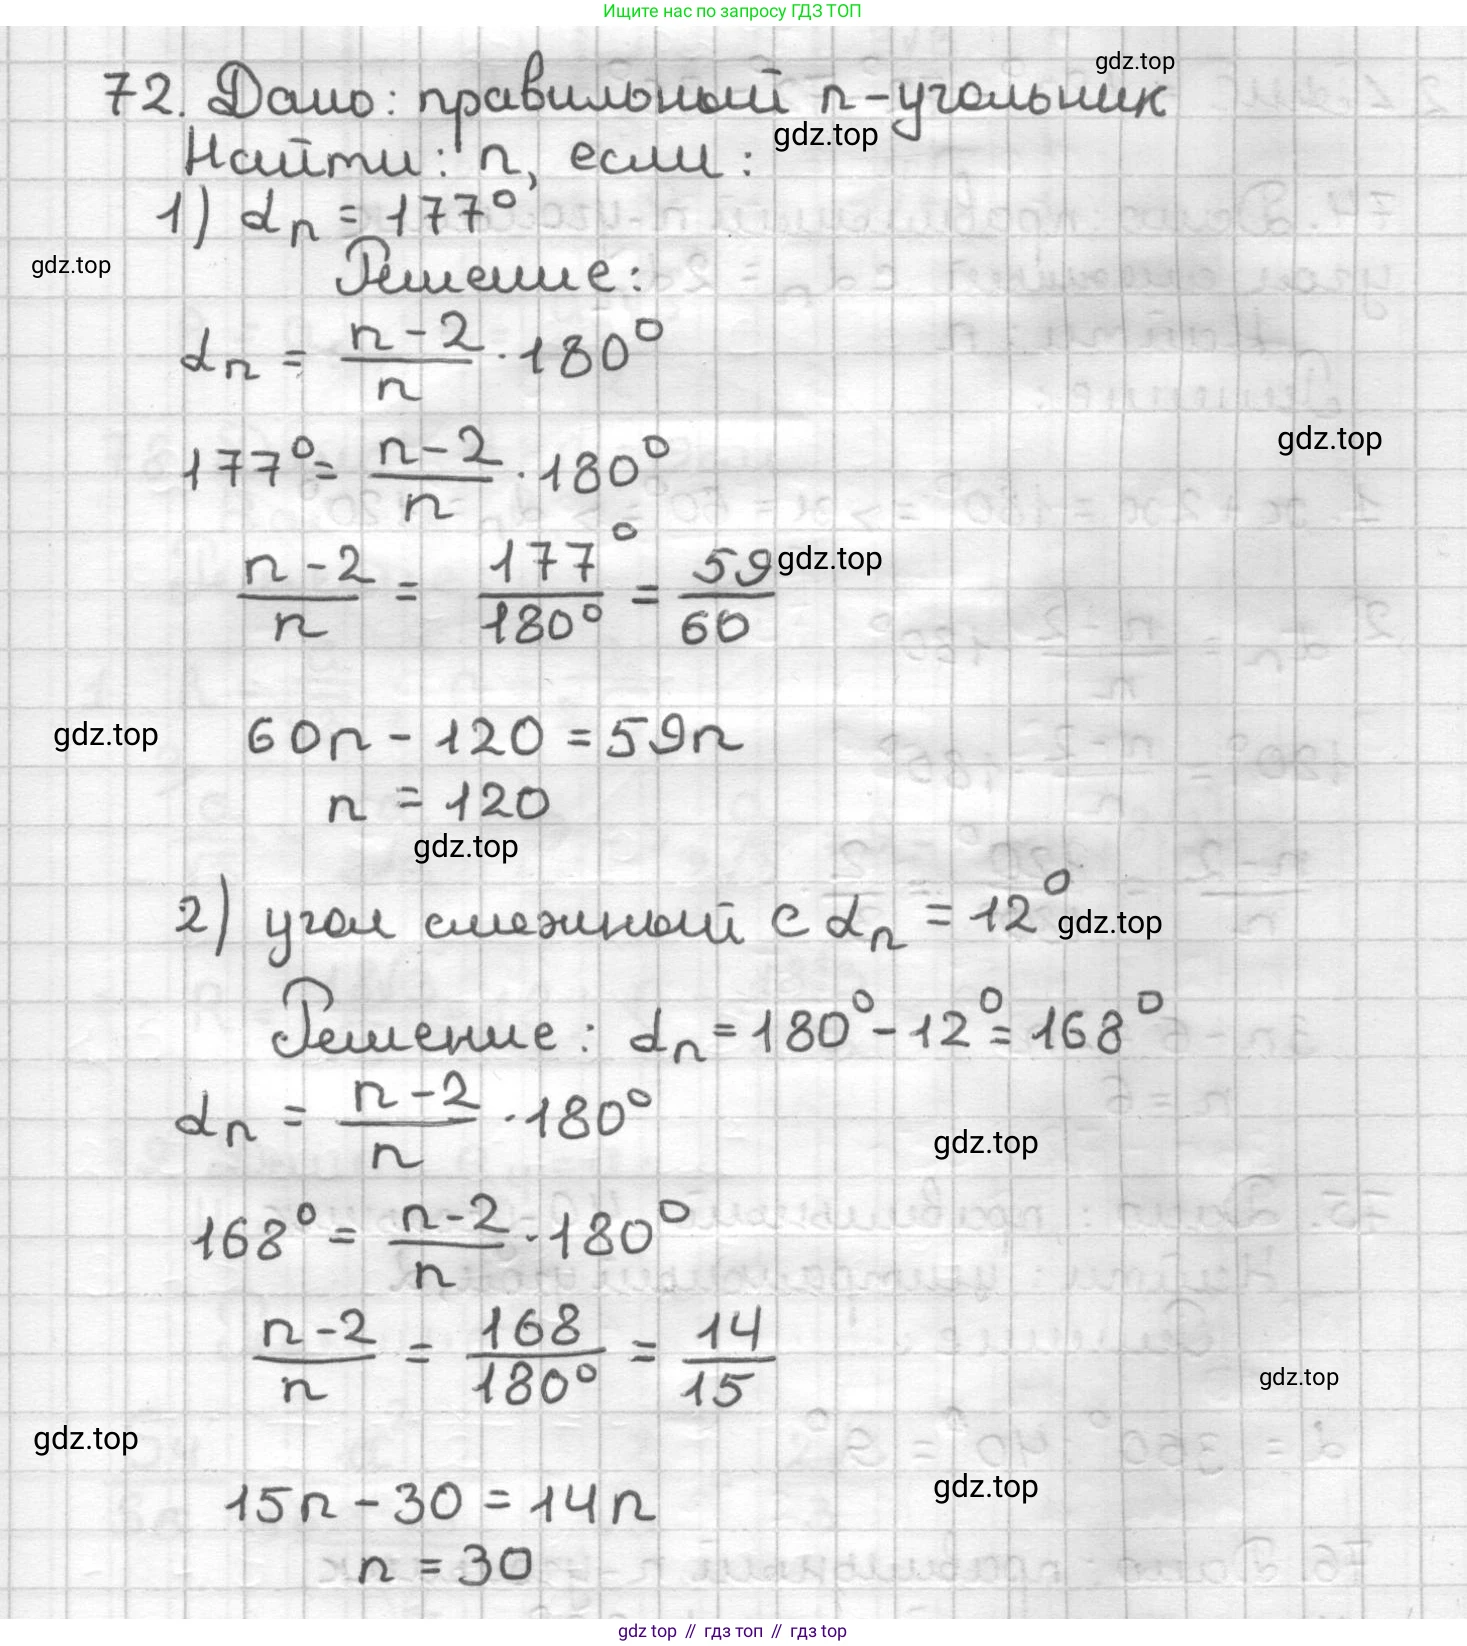 Ищите нас по запросу ГДЗ ТОП
gdz.top
72. Дано: правильный n-угольник
gdz.top
Найти: n, если:
1) αn = 177°
gdz.top
Решение:
αn = (n-2)/n · 180°
gdz.top
177° = (n-2)/n · 180°
(n-2)/n = 177°/180° = 59/60
gdz.top
gdz.top
60n - 120 = 59n
n = 120
gdz.top
2) угол смежный с αn = 12°
gdz.top
Решение: αn = 180° - 12° = 168°
αn = (n-2)/n · 180°
gdz.top
168° = (n-2)/n · 180°
(n-2)/n = 168/180° = 14/15
gdz.top
gdz.top
gdz.top
15n - 30 = 14n
n = 30
gdz top // гдз топ // гдз top